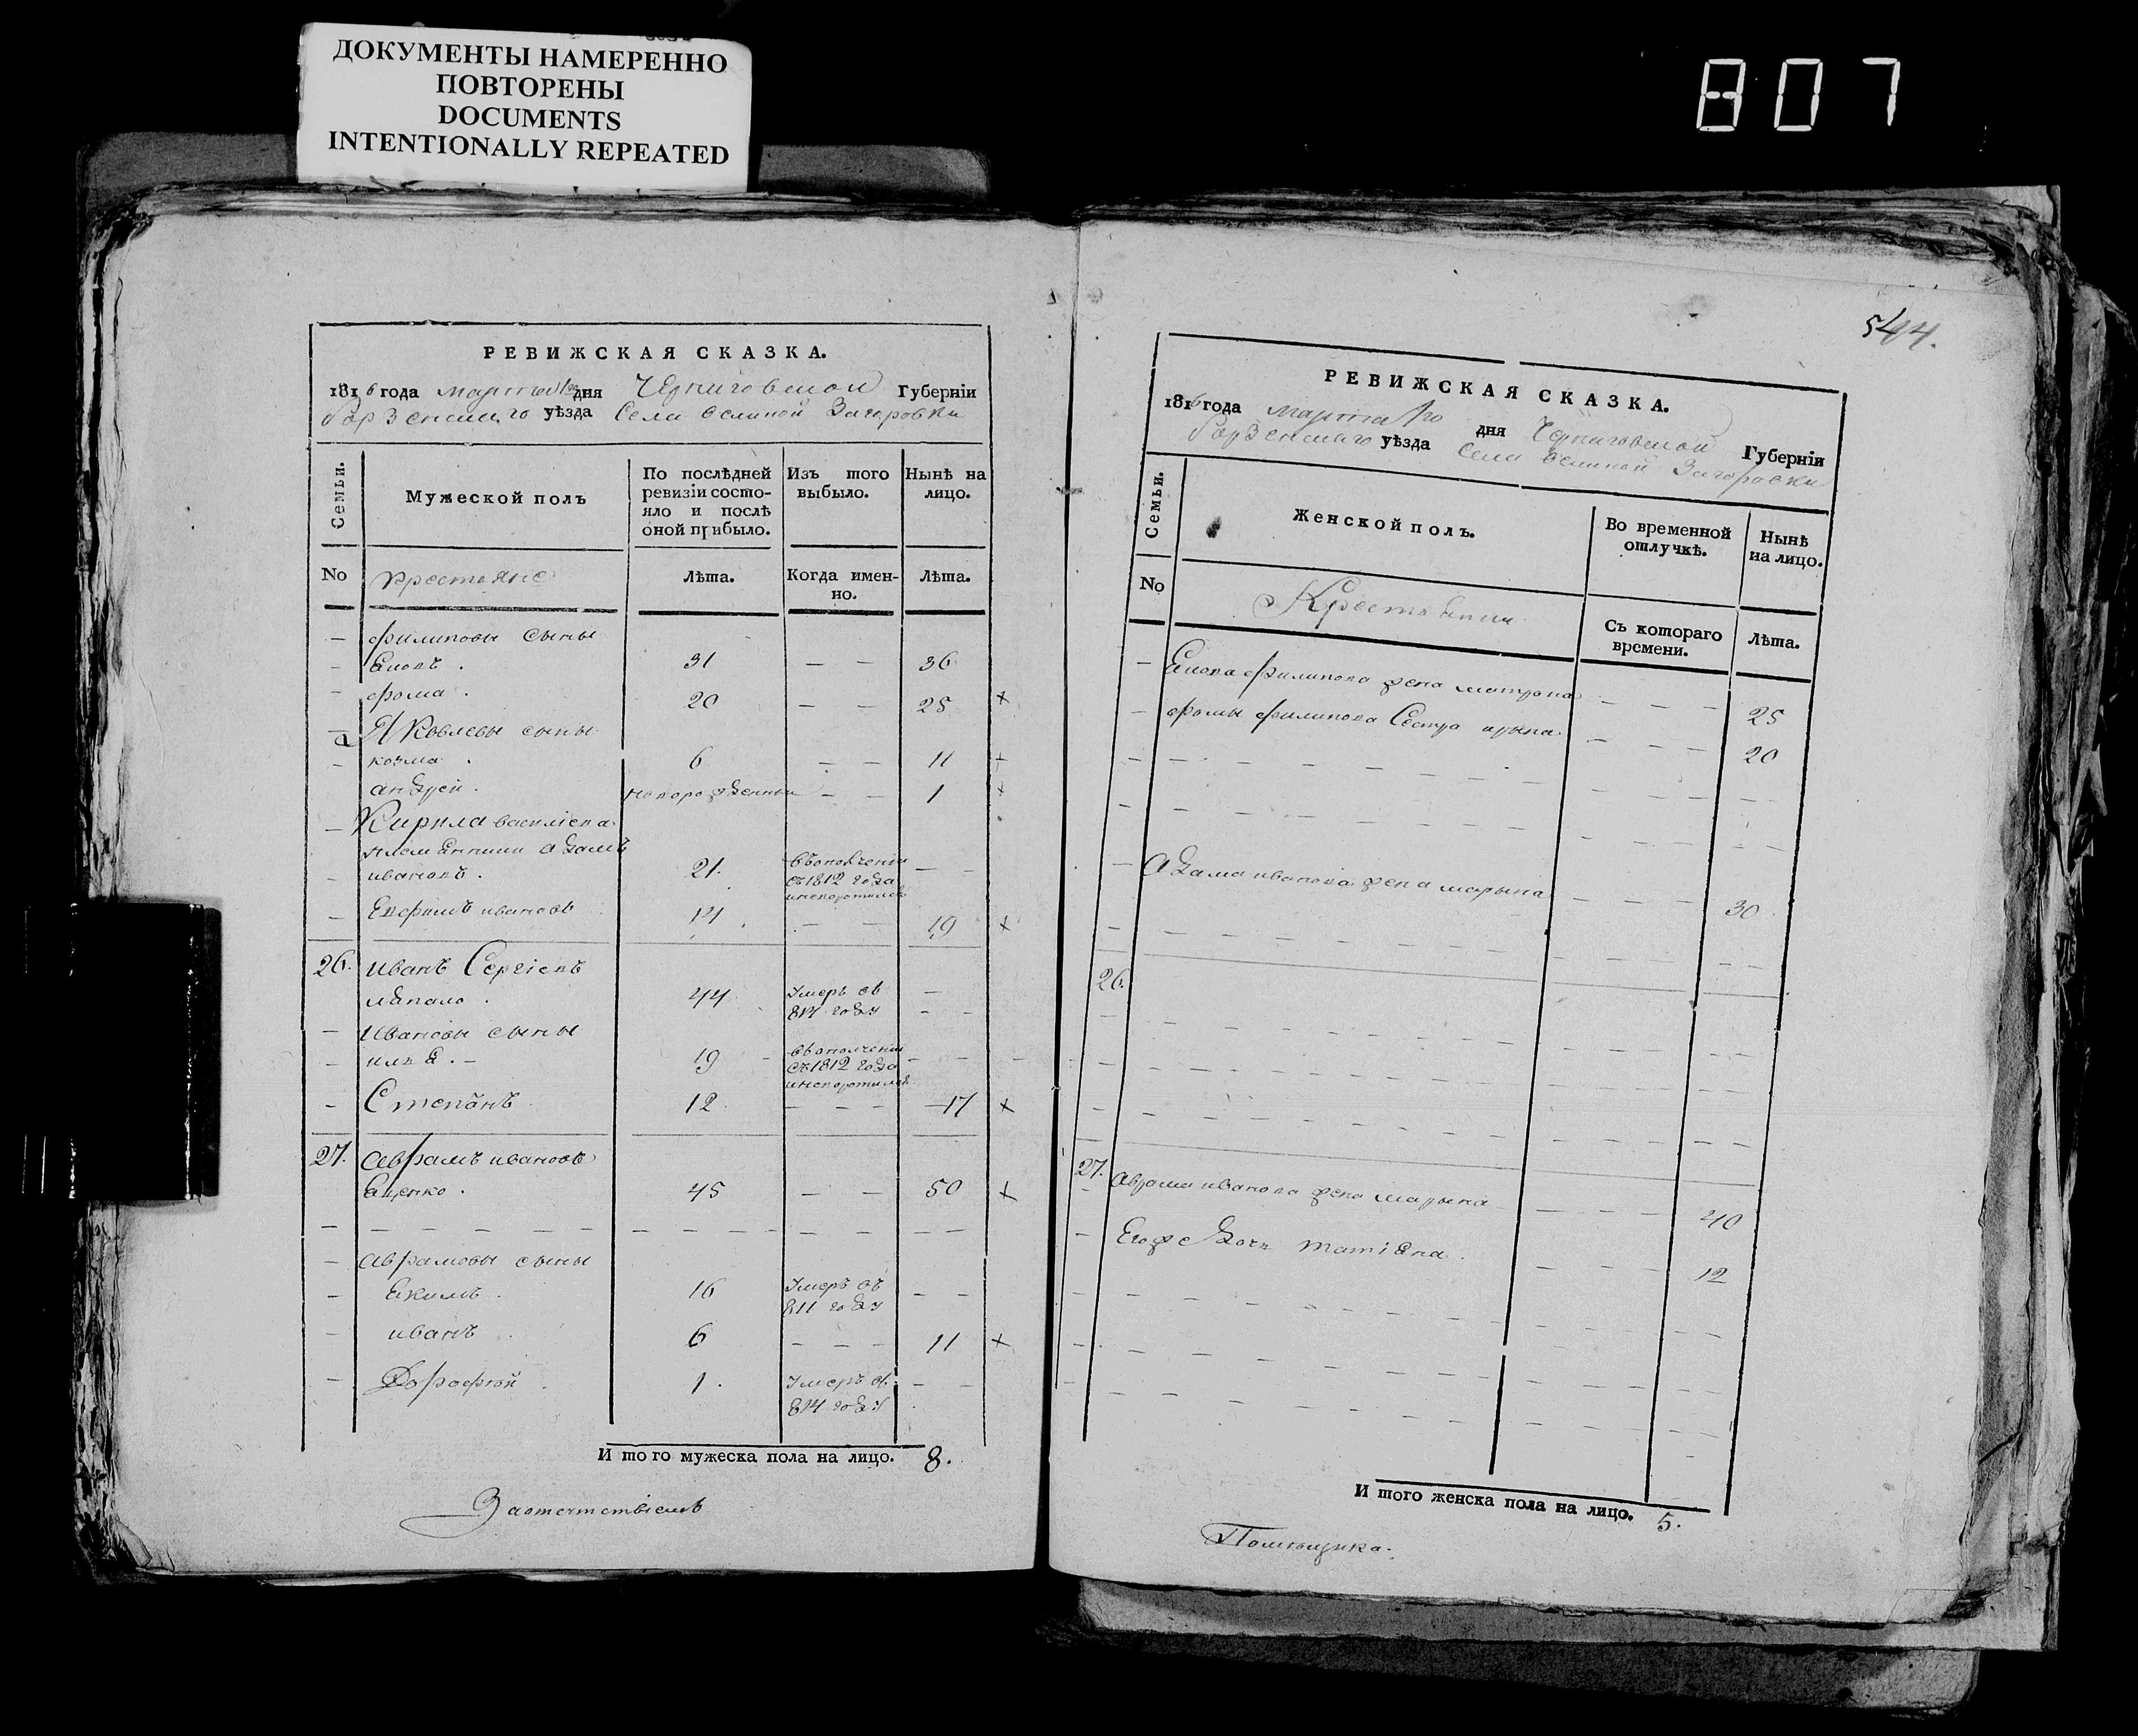 ДОКУМЕНТЫ НАМЕРЕННО
ПОВТОРЕНЫ
DOCUMENTS
INTENTIONALLY REPEATED
807
РЕВИЖСКАЯ СКАЗКА.
1816 года марта дня Черниговской Губерніи
Борзенскаго уѣзда Села великой Загоровки
Семьи.
Мужеской полъ
По послѣдней ревизіи состояло и послѣ оной прибыло.
Изъ того выбыло.
Нынѣ на лицо.
No
крестьяне
Лѣта.
Когда именно.
Лѣта.
филиповы сыны
31 — — 36
фома . 20 — — 25 +
Яковлевы сыны
козма . 6 — — 11 +
андрей . новорожденный — — 1 +
Кирила василіева
племянники адамъ
ивановъ . 21. въ ополченіи съ 1812 года — —
Ефимъ ивановъ 14 . — — 19 +
26. иванъ Сергіевъ
44 Умеръ въ 814 году —
Ивановы сыны
илья . — 19 въ ополченіи съ 1812 года — —
Степанъ 12 — — — 17 +
27. аврамъ ивановъ
Яценко . 45 — — 50 +
аврамовы сыны
Якимъ . 16 Умеръ въ 811 году — —
иванъ . 6 — — — 11 +
Дорофей . 1 . Умеръ въ 814 году — —
И того мужеска пола на лицо. 8.
За отечествіемъ
544.
РЕВИЖСКАЯ СКАЗКА.
1816 года марта дня Черниговской Губерніи
Борзенскаго уѣзда Села великой Загоровки
Семьи.
Женской полъ.
Во временной отлучкѣ.
Нынѣ на лицо.
No
Съ котораго времени.
Лѣта.
филипова жена матрона — — — 25
фомы филипова Сестра ирына — — — 20
Адама иванова жена марына — — — 30
26.
27. Аврама иванова жена марына — — — 40
Егоже дочь татіяна . — — — 12
И того женска пола на лицо. 5.
Помещика.